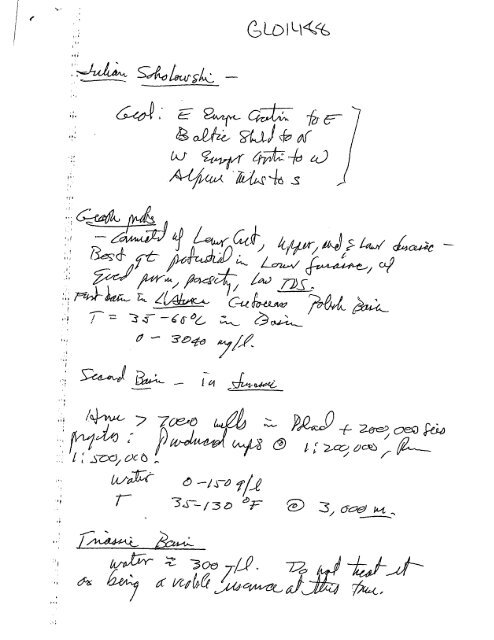 GL01488
Julian Sokolowski —
Geol: E Europe Craton to E
Baltic Shld to N
W Europe Craton to W
Alpine to S
— Consists of Lower Cret, Upper, and & Lower Jurassic —
Best gt potential in Lower Jurassic, w/
Good perm, porosity, low TDS.
First basin in Cretaceous Polish Basin
T = 35-60°C in Basin
0 - 3040 mg/l.
Second Basin - in Jurassic
Have > 7000 wells in Poland + 200,000 seis
Produced maps @ 1:200,000,
1:500,000.
Water 0-150 g/l
T 35-130 °F @ 3,000 m.
Triassic Basin
water ≈ 300 g/l. Do not treat it
as being a viable resource at this time.